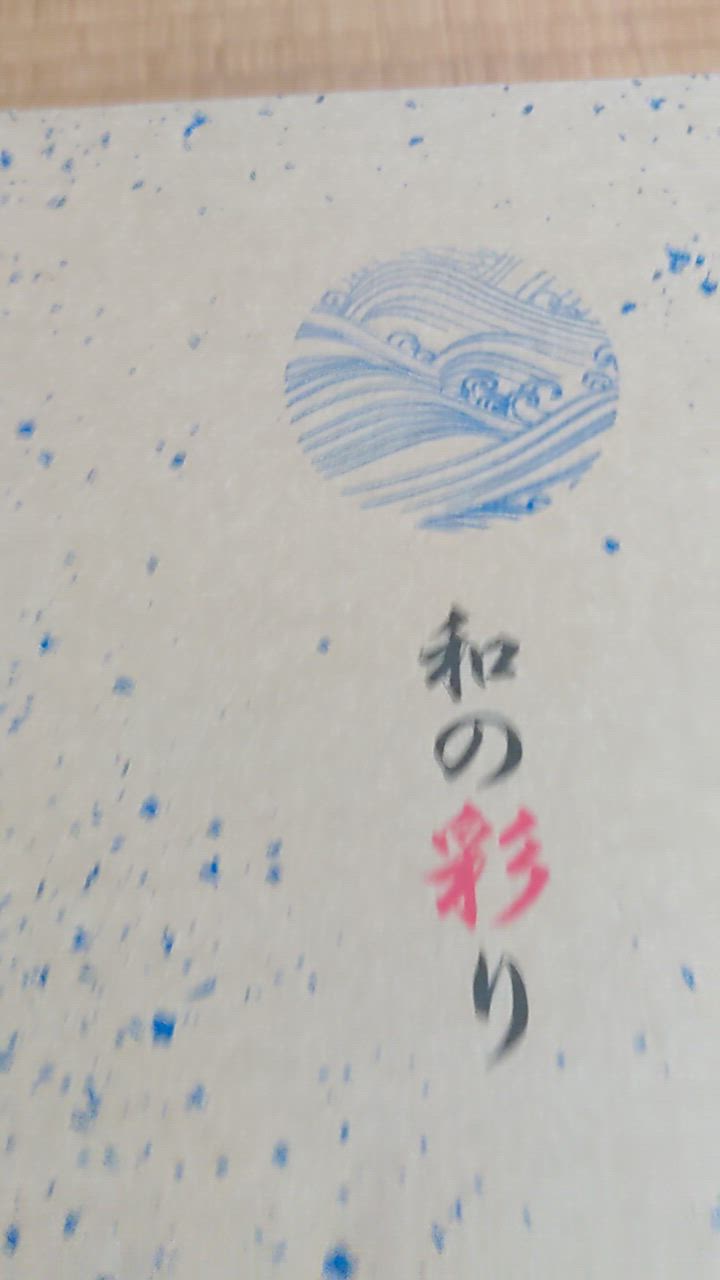 和の彩り